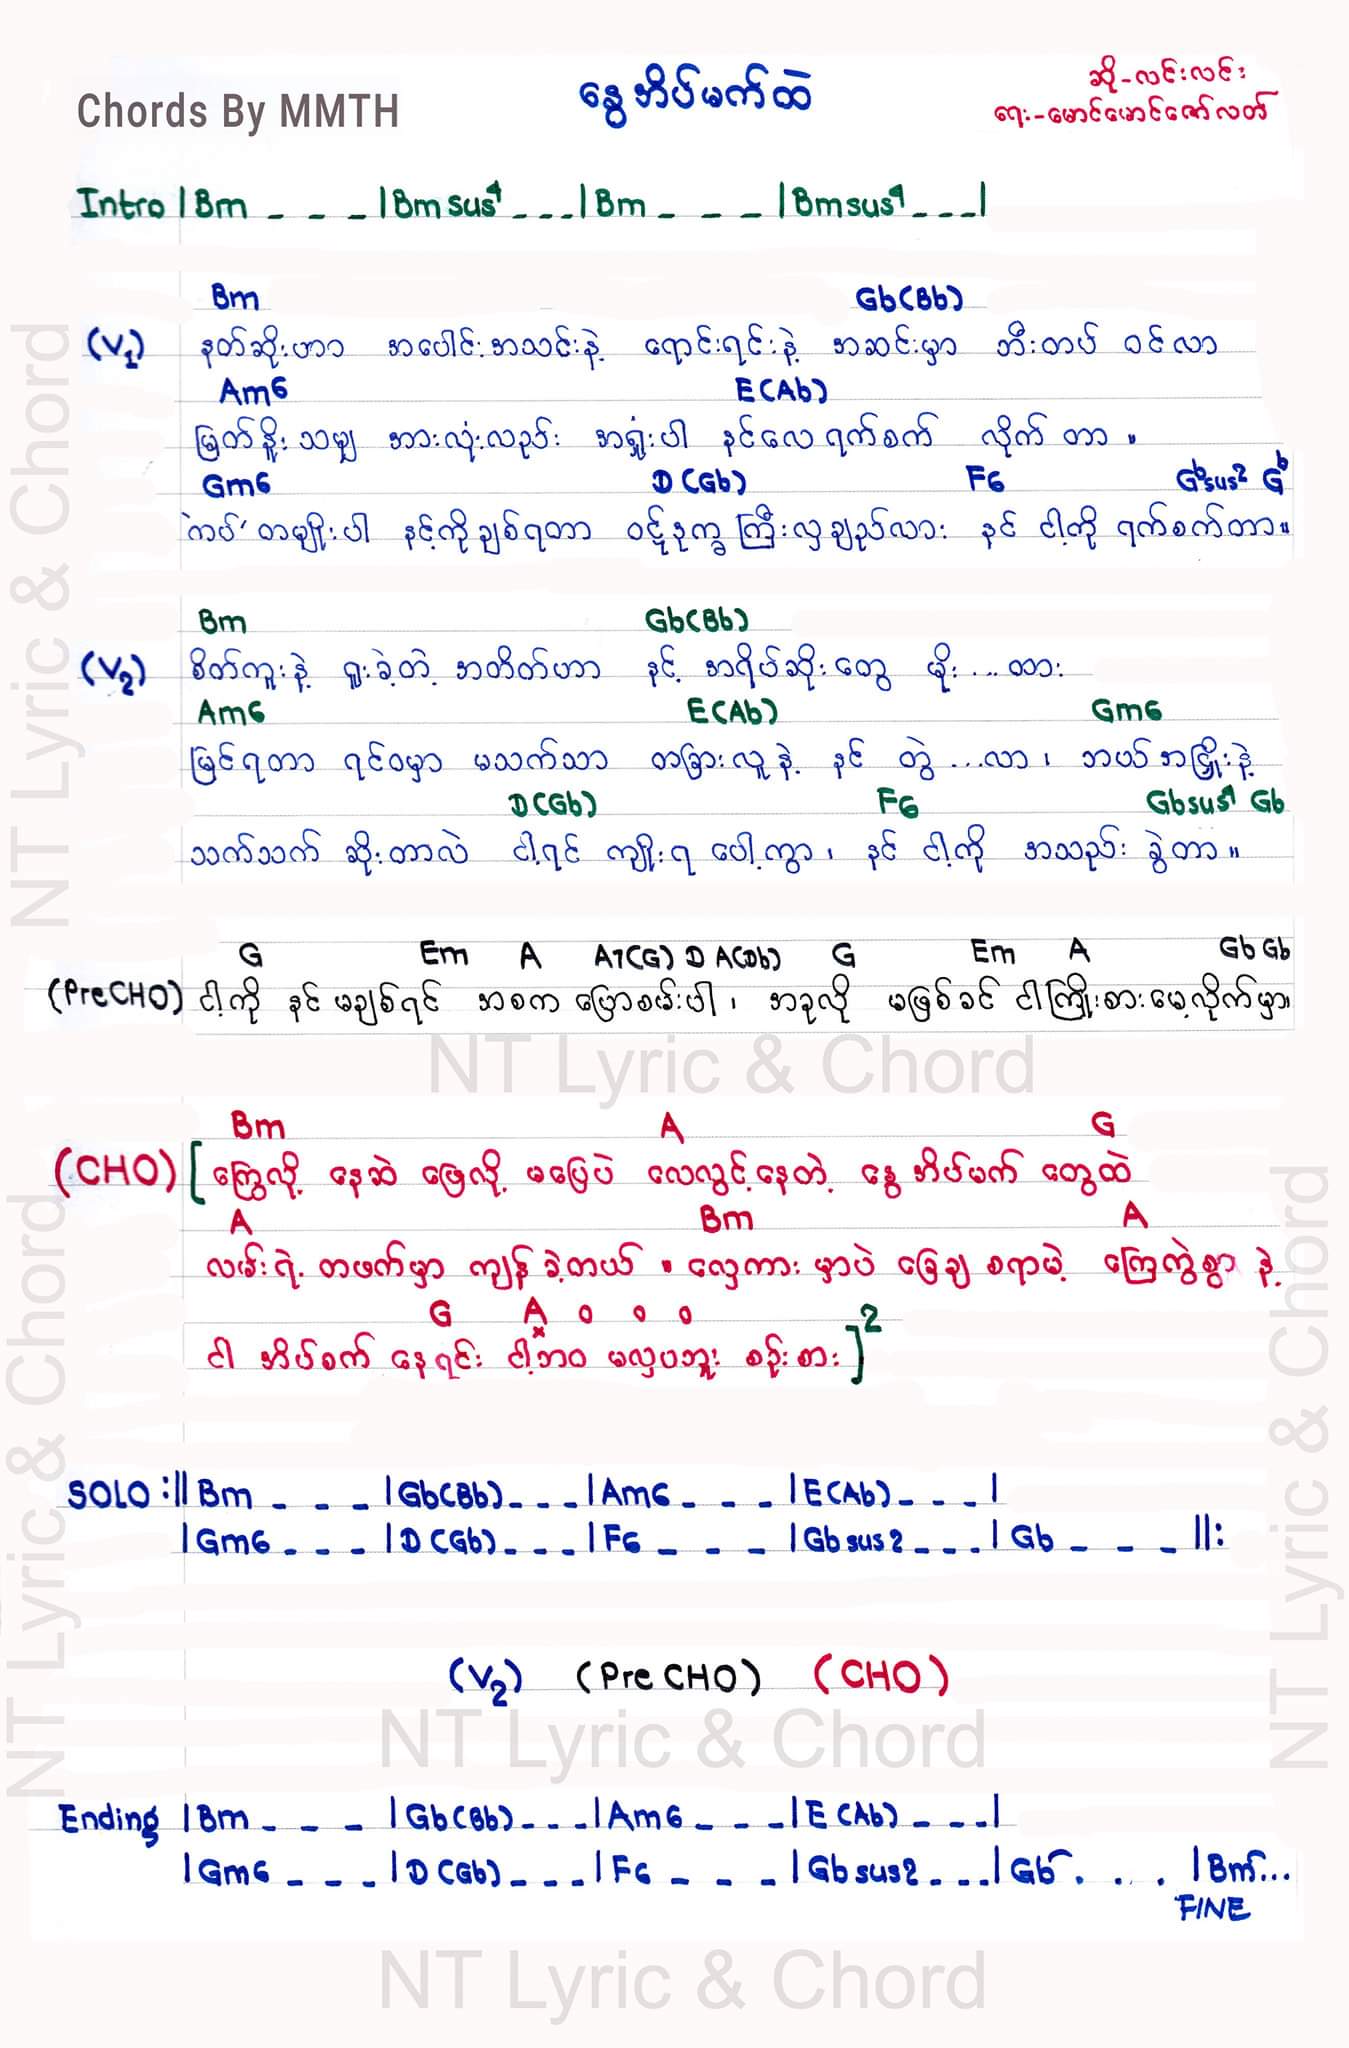 Chords By MMTH
နွေအိပ်မက်ထဲ
ဆို-လင်းလင်း
ရေး-မောင်မောင်ဇော်လတ်
Intro | Bm _ _ _ | Bm sus4 _ _ _ | Bm _ _ _ | Bm sus4 _ _ _ |
Bm Gb(Bb)
(V1) နတ်ဆိုးဟာ အပေါင်းအသင်းနဲ့ ရောင်းရင်းနဲ့ အဆင်းမှာ ဘီးတပ် ဝင်လာ
Am6 E(Ab)
မြတ်နိုးသမျှ အားလုံးလည်း အရှုံးပါ နင်လေ ရက်စက် လိုက် တာ ။
Gm6 D(Gb) F6 Gbsus2 Gb
'ကပ်' တမျိုးပါ နင့်ကိုချစ်ရတာ ဝဋ်ဒုက္ခ ကြီးလှချည်လား နင် ငါ့ကို ရက်စက်တာ။
Bm Gb(Bb)
(V2) စိတ်ကူးနဲ့ ရူးခဲ့တဲ့ အတိတ်ဟာ နင့် အရိပ်ဆိုးတွေ မိုး...ထား
Am6 E(Ab) Gm6
မြင်ရတာ ရင်ဝမှာ မသက်သာ တခြားလူနဲ့ နင် တွဲ ...လာ ၊ ဘယ်အငြှိုးနဲ့
D(Gb) F6 Gbsus4 Gb
သက်သက် ဆိုးတာလဲ ငါ့ရင် ကျိုးရ ပေါ့ကွာ ၊ နင် ငါ့ကို အသည်း ခွဲတာ ။
G Em A A7(G) D A(Db) G Em A Gb Gb
(PreCHO) ငါ့ကို နင် မချစ်ရင် အစက ပြောစမ်းပါ ၊ အခုလို မဖြစ်ခင် ငါကြိုးစားမေ့လိုက်မှာ။
Bm A G
(CHO) [ကြွေလို့ နေဆဲ ဖြေလို့ မပြေပဲ လေလွင့်နေတဲ့ နွေအိပ်မက် တွေထဲ
A Bm A
လမ်းရဲ့ တဖက်မှာ ကျန်ခဲ့တယ် ။ လှေကား မှာပဲ ခြေချ စရာမဲ့ ကြေကွဲစွာ နဲ့
G A o o o
ငါ အိပ်စက် နေရင်း ငါ့ဘဝ မလှပဘူး စဉ်းစား]2
SOLO :|| Bm _ _ _ | Gb(Bb) _ _ _ | Am6 _ _ _ | E(Ab) _ _ _ |
| Gm6 _ _ _ | D(Gb) _ _ _ | F6 _ _ _ | Gb sus2 _ _ _ | Gb _ _ _ ||:
(V2) (Pre CHO) (CHO)
Ending | Bm _ _ _ | Gb(Bb) _ _ _ | Am6 _ _ _ | E(Ab) _ _ _ |
| Gm6 _ _ _ | D(Gb) _ _ _ | F6 _ _ _ | Gb sus2 _ _ _ | Gb . . . . | Bm...
FINE
NT Lyric & Chord
NT Lyric & Chord
NT Lyric & Chord
NT Lyric & Chord
NT Lyric & Chord
NT Lyric & Chord